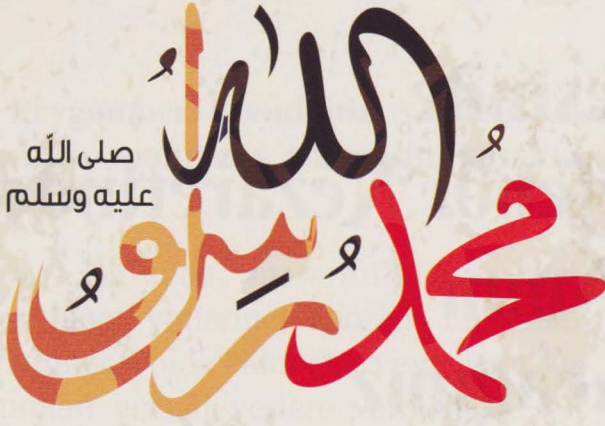 محمدُ رسولُ اللهِ
صلى اللّه
عليه وسلم